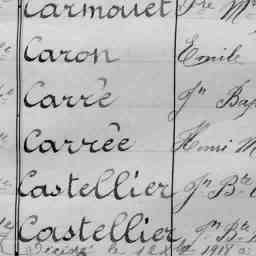 Carmouet Pre M
Caron Emile
Carré Jn Bap
Carrée Henri M
Castellier Jn Bte
Castellier Jn Bte
Décédé le 12 X 1918 à